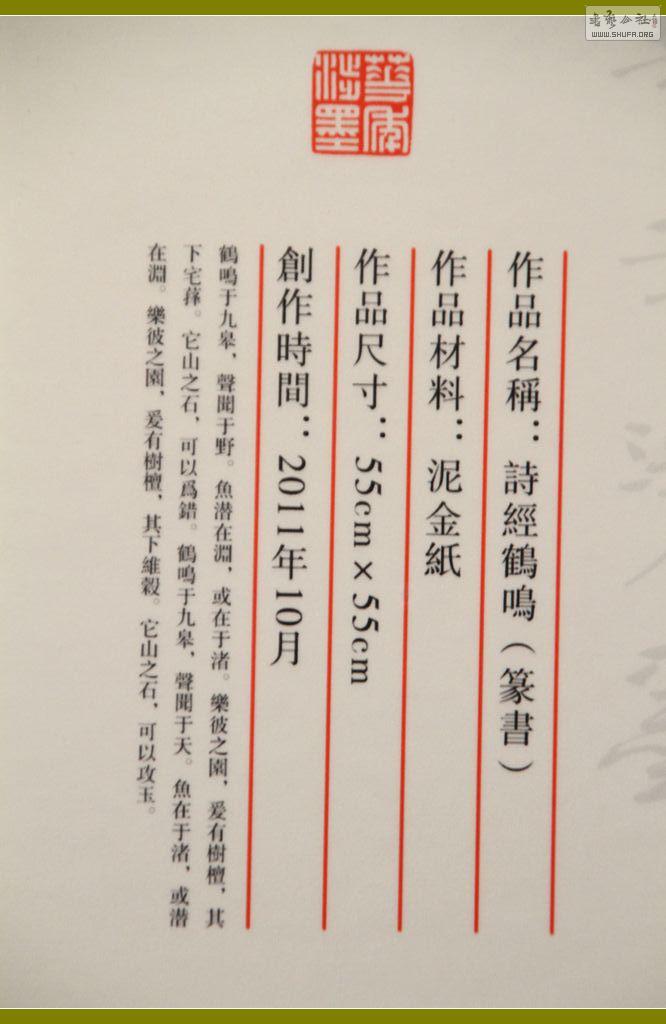 作品名稱：詩經鶴鳴（篆書）
作品材料：泥金紙
作品尺寸：55cm×55cm
創作時間：2011年10月
鶴鳴于九皋，聲聞于野。魚潛在淵，或在于渚。樂彼之園，爰有樹檀，其
下它蘀。它山之石，可以爲錯。鶴鳴于九皋，聲聞于天。魚在于渚，或潛
在淵。樂彼之園，爰有樹檀，其下維穀。它山之石，可以攻玉。
WWW.SHUFA.ORG